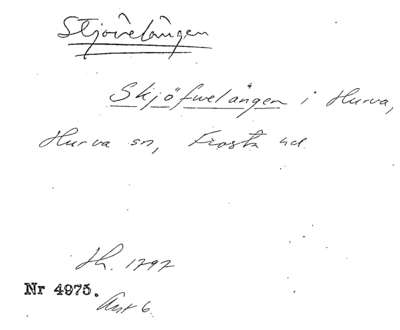 Skjövelången
Skjöfwelången i Hurva,
Hurva sn, Frosta hd.
Sk. 1797
Nr 4975.
Akt 6.